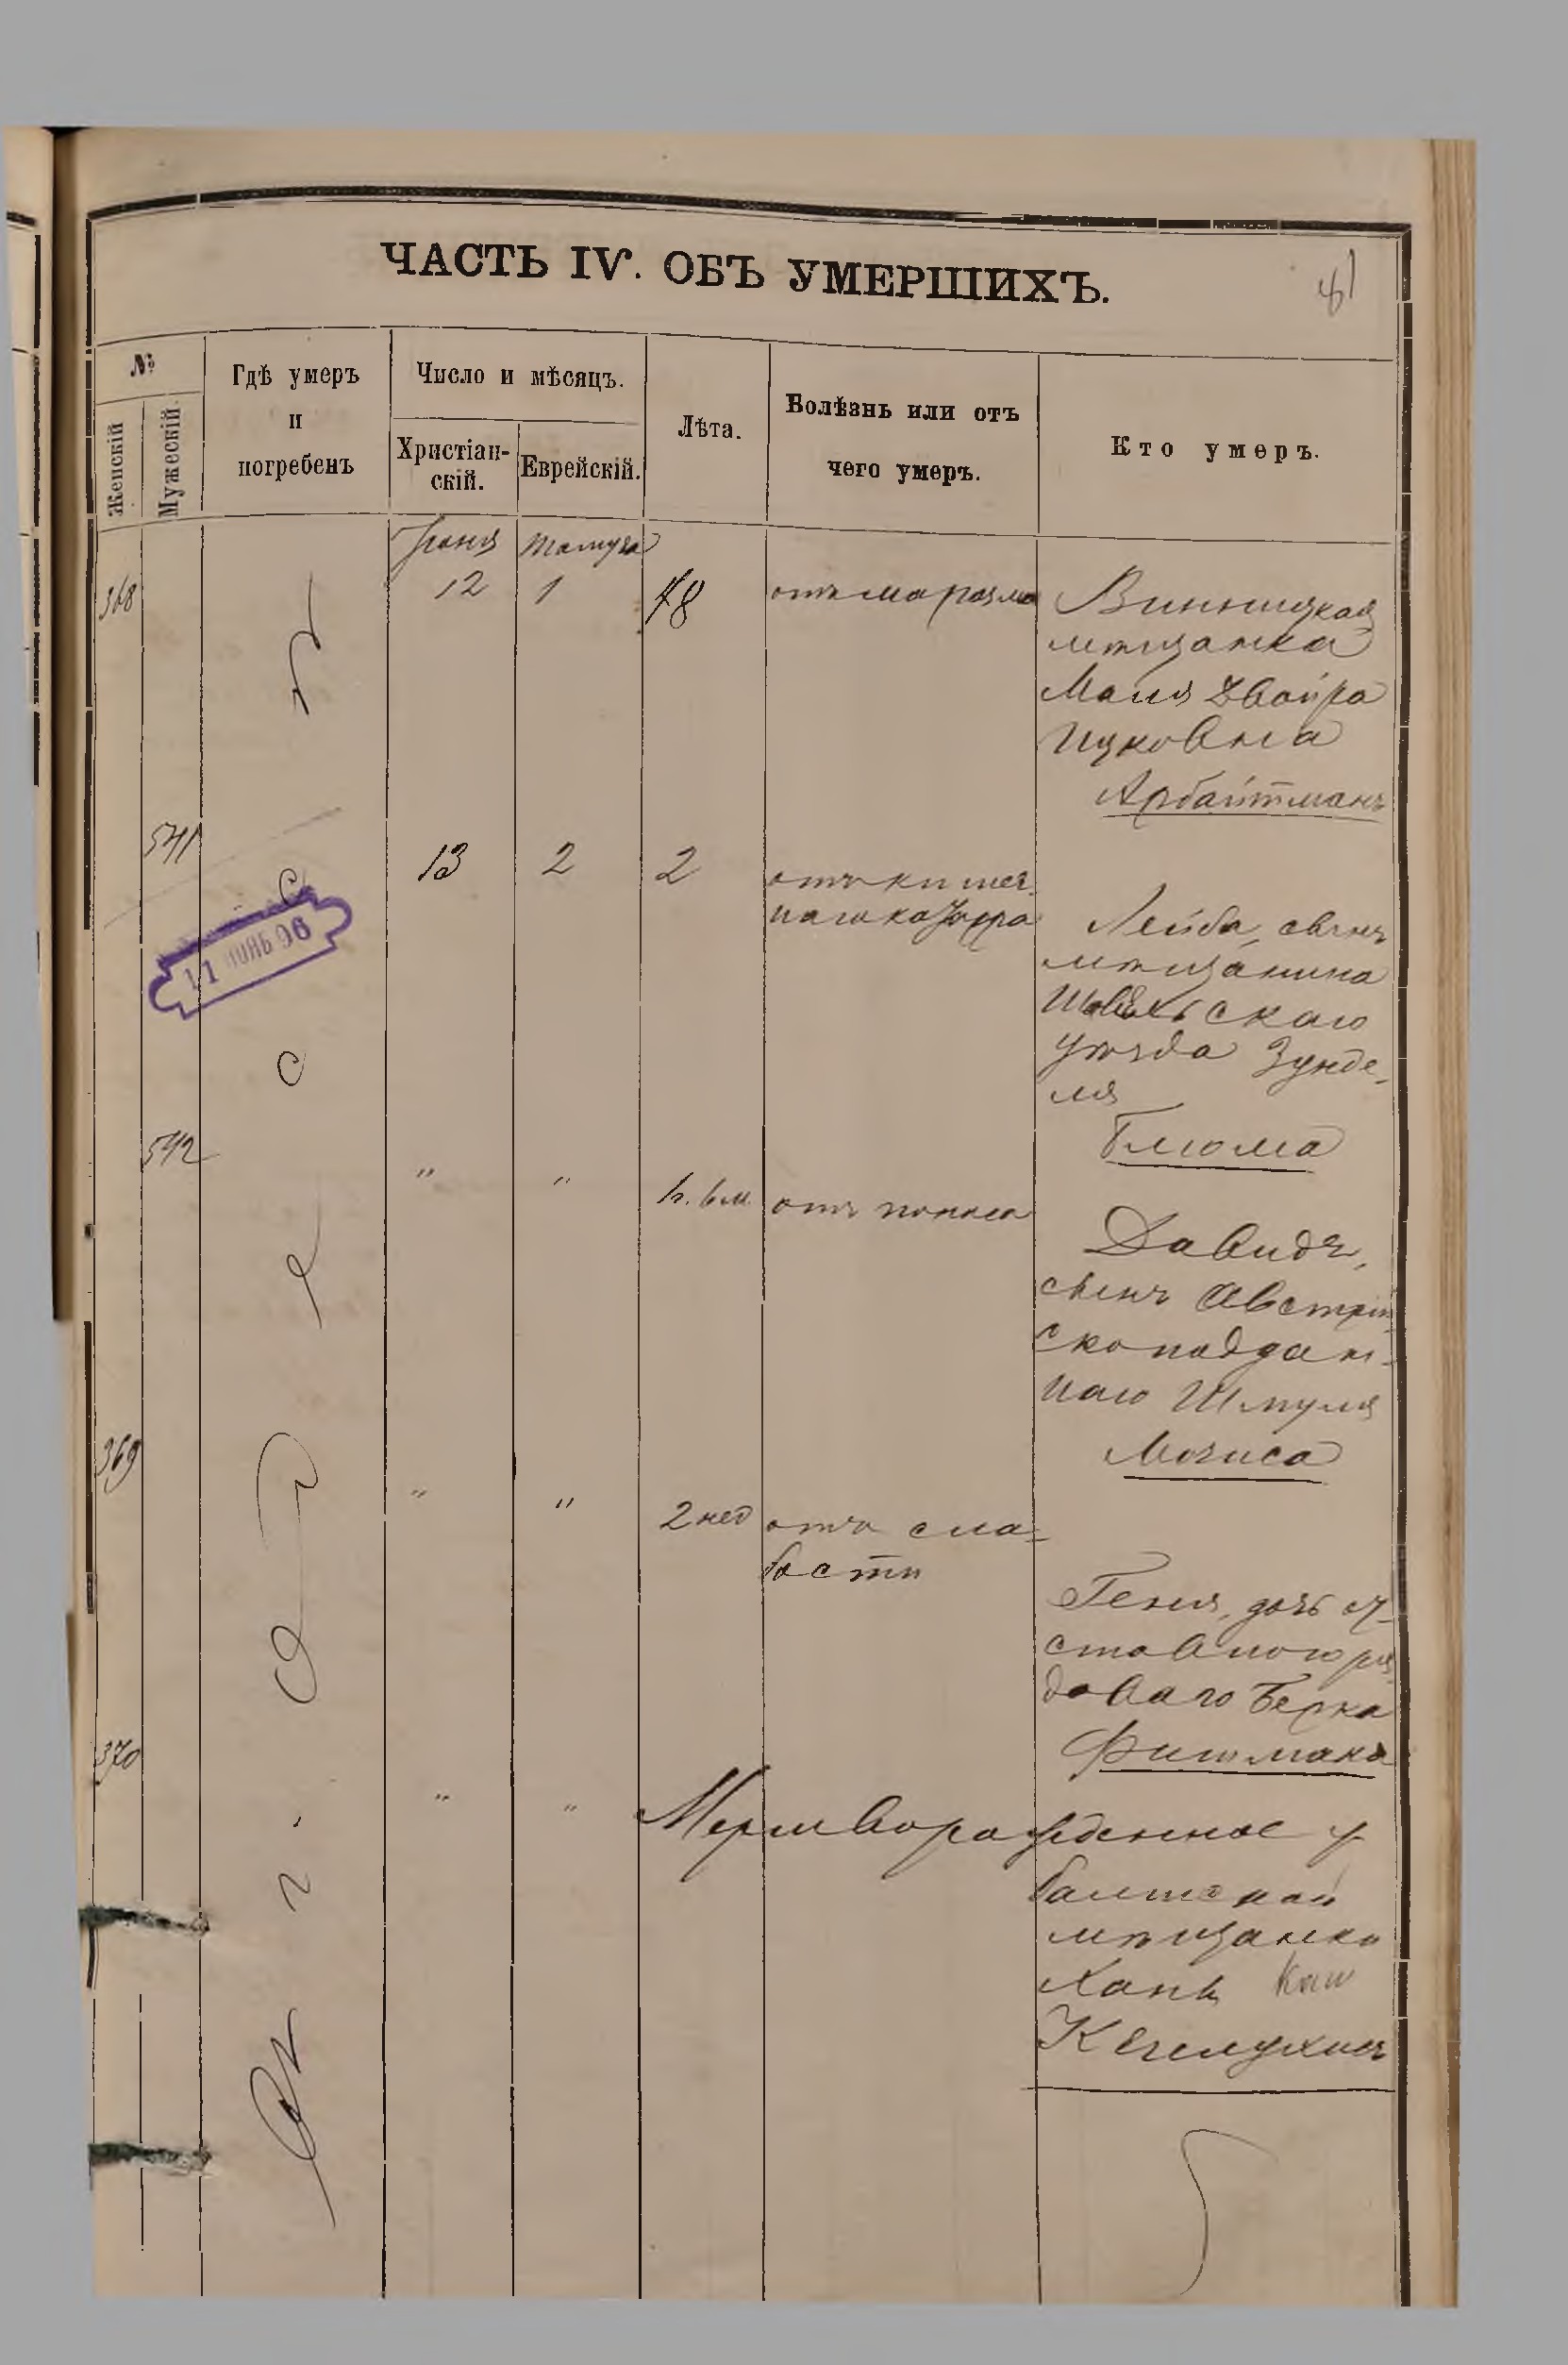 ЧАСТЬ IV. ОБЪ УМЕРШИХЪ.
81
№
Женскій
Мужескій
Гдѣ умеръ
и
погребенъ
Число и мѣсяцъ.
Христіан-
скій.
Еврейскій.
Лѣта.
Болѣзнь или отъ
чего умеръ.
Кто умеръ.
Іюня
Тамуза
368
12
1
48
отъ маразма
Винницкая
мѣщанка
Маля Двойра
Ицковна
Арбайтманъ
541
13
2
2
отъ кишеч-
наго катарра
Лейба, сынъ
мѣщанина
Шавельскаго
уѣзда Зунде-
ля
Блюма
11 НОЯБ 96
542
"
"
1 г. 6 м.
отъ поноса
Давидъ,
сынъ Австрій-
скоподдан-
наго Шмуля
Мочиса
369
"
"
2 нед
отъ сла-
бости
Геня, дочь от-
ставного ря-
доваго Берка
Фишмана
370
"
"
Мертворожденное у
балтской
мѣщанки
Ханы
Въ г. Одессѣ